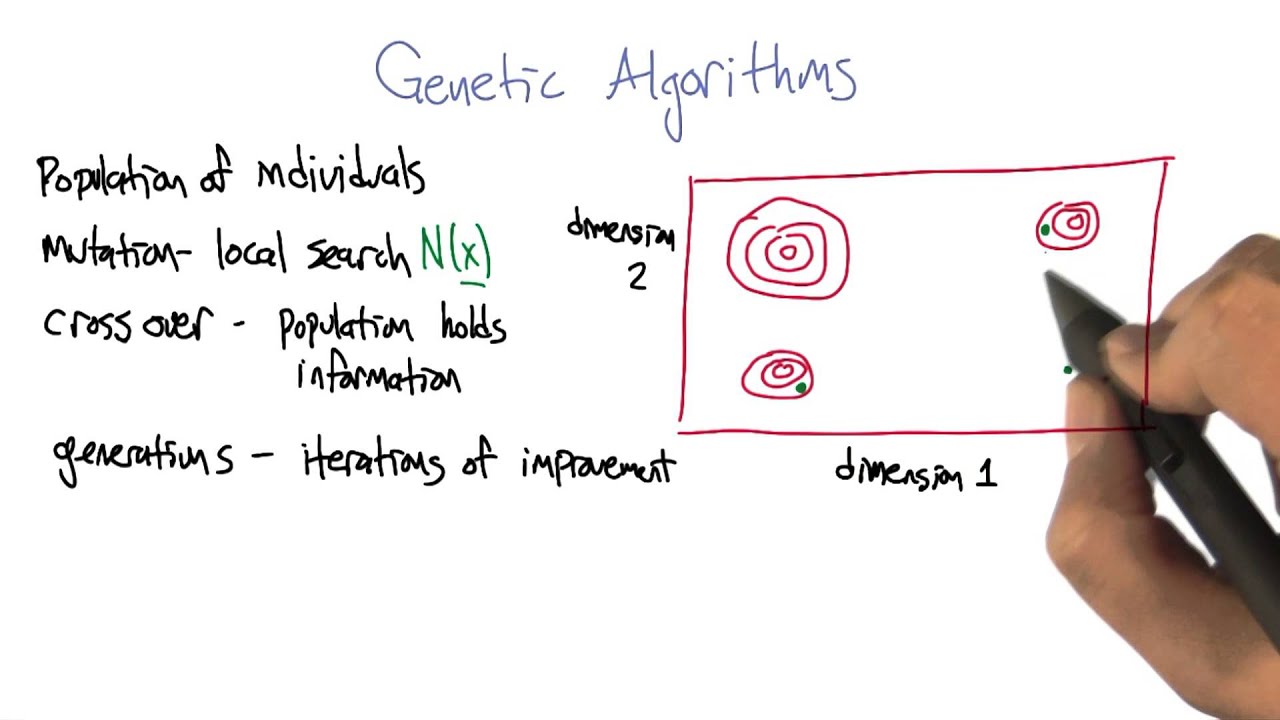 Genetic Algorithms
Population of individuals
Mutation- local search N(x)
cross over - population holds
information
generations - iterations of improvement
dimension
2
dimension 1